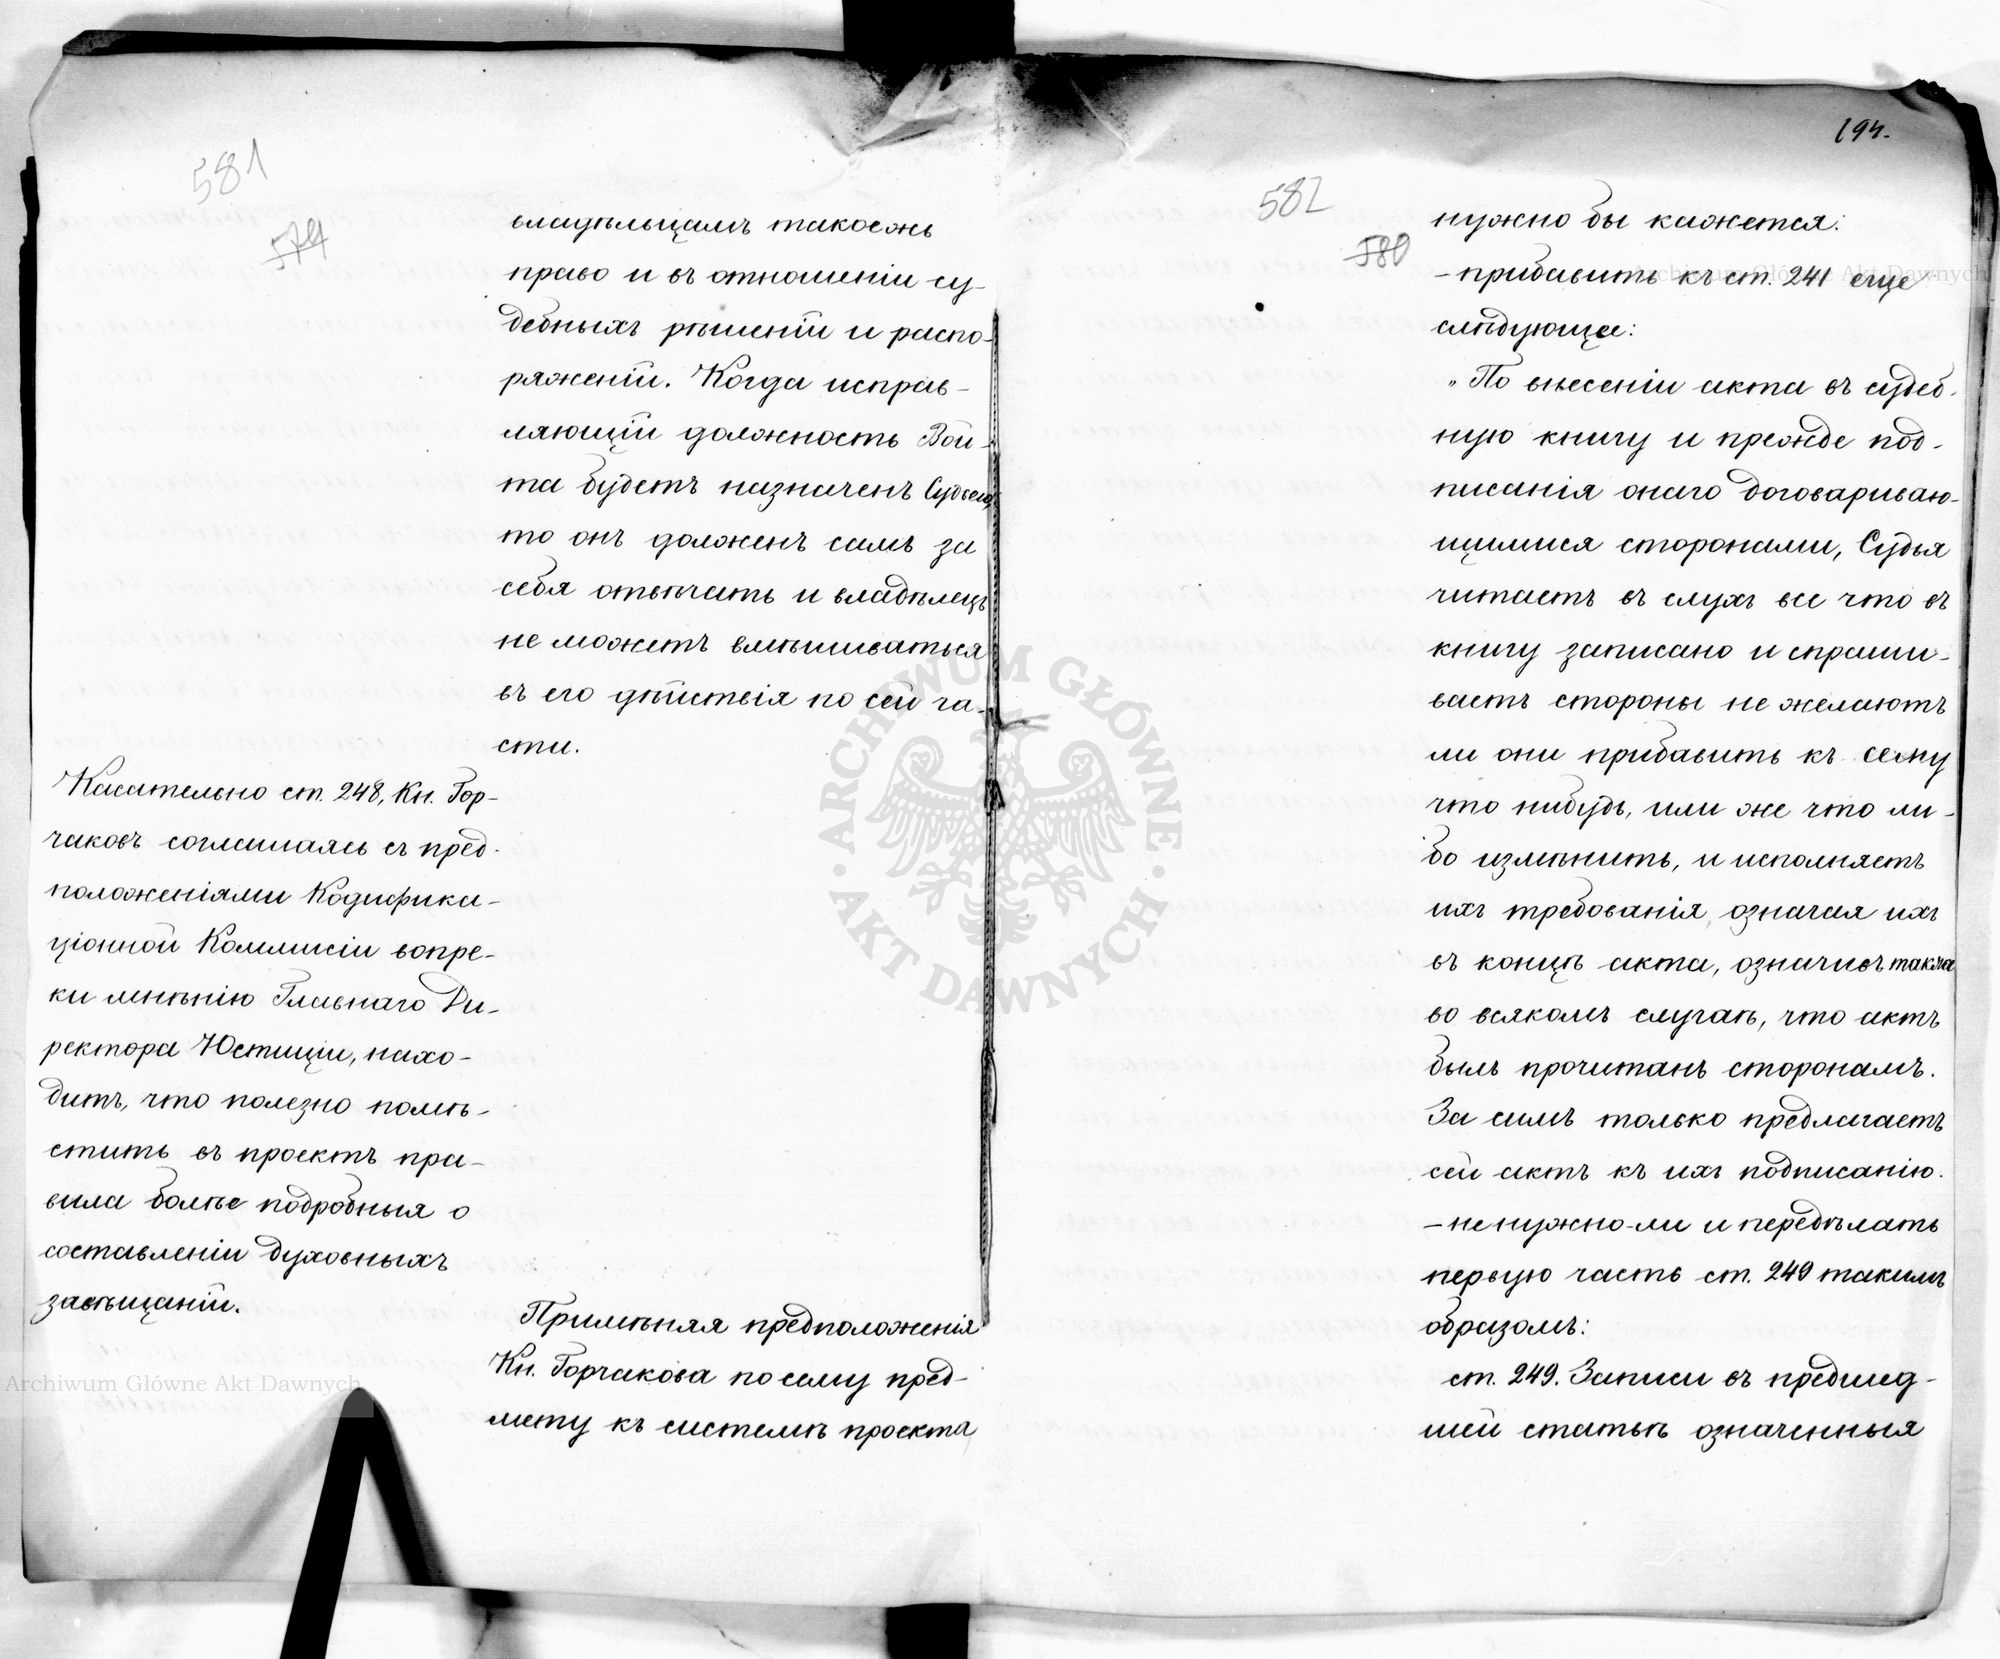 581
579
владѣльцамъ такоежь
право и въ отношеніи су-
дебныхъ рѣшеній и распо-
ряженій. Когда исправ-
ляющій должность Вой-
та будетъ назначенъ Судьею,
то онъ долженъ самъ за
себя отвѣчать и владѣлецъ
не можетъ вмѣшиваться
въ его дѣйствія по сей ча-
сти.
Касательно ст. 248, Кн. Гор-
чаковъ соглашаясь съ пред-
положеніями Кодифика-
ціонной Коммисіи вопре-
ки мнѣнію Главнаго Ди-
ректора Юстиціи, нахо-
дитъ, что полезно помѣ-
стить въ проектъ пра-
вила болѣе подробныя о
составленіи духовныхъ
завѣщаній.
Примѣняя предположенія
Кн. Горчакова по сему пред-
мету къ системѣ проекта
194.
582
580
нужно бы кажется:
- прибавить къ ст. 241 еще
слѣдующее:
„По внесеніи акта въ судеб-
ную книгу и прежде под-
писанія онаго договариваю-
щимися сторонами, Судья
читаетъ въ слухъ все что въ
книгу записано и спраши-
ваетъ стороны не желаютъ
ли они прибавить къ сему
что нибудь, или же что ли-
бо измѣнить, и исполняетъ
ихъ требованія, означая ихъ
въ концѣ акта, означивъ также
во всякомъ случаѣ, что актъ
былъ прочитанъ сторонамъ.
За симъ только предлагаетъ
сей актъ къ ихъ подписанію.
- не нужно-ли и передѣлать
первую часть ст. 249 такимъ
образомъ:
ст. 249. Записи въ предшед-
шей статьѣ означенныя
ARCHIWUM GŁÓWNE AKT DAWNYCH
Archiwum Główne Akt Dawnych
Archiwum Główne Akt Dawnych